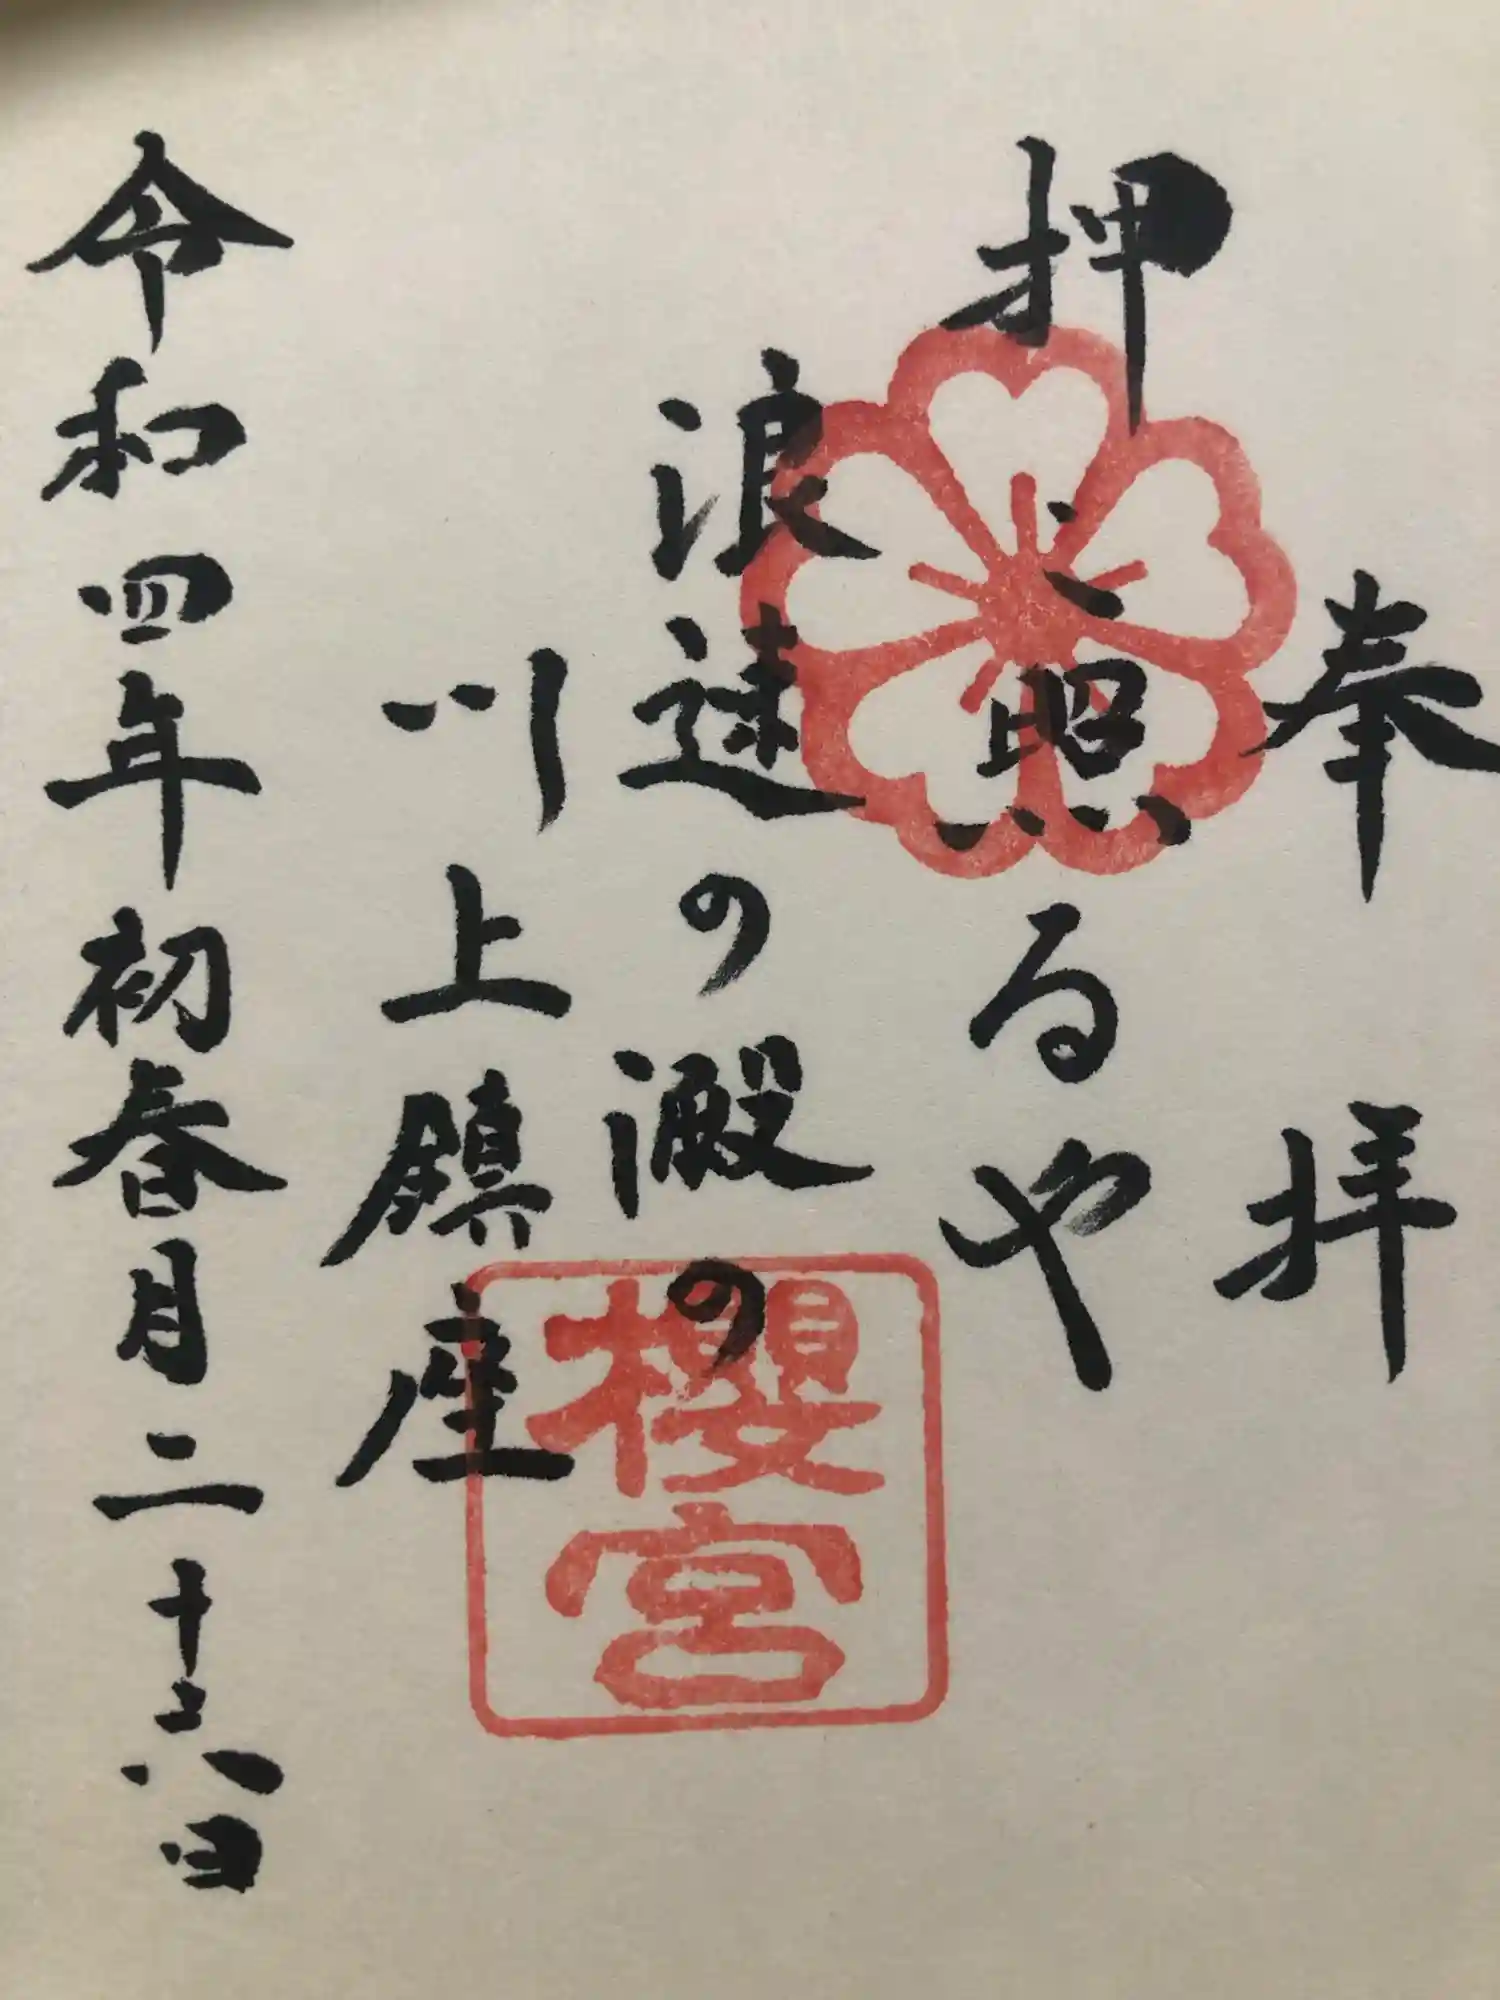 奉拝
押し照るや
浪速の澱の
川上鎮座
櫻宮
令和四年初春月二十六日